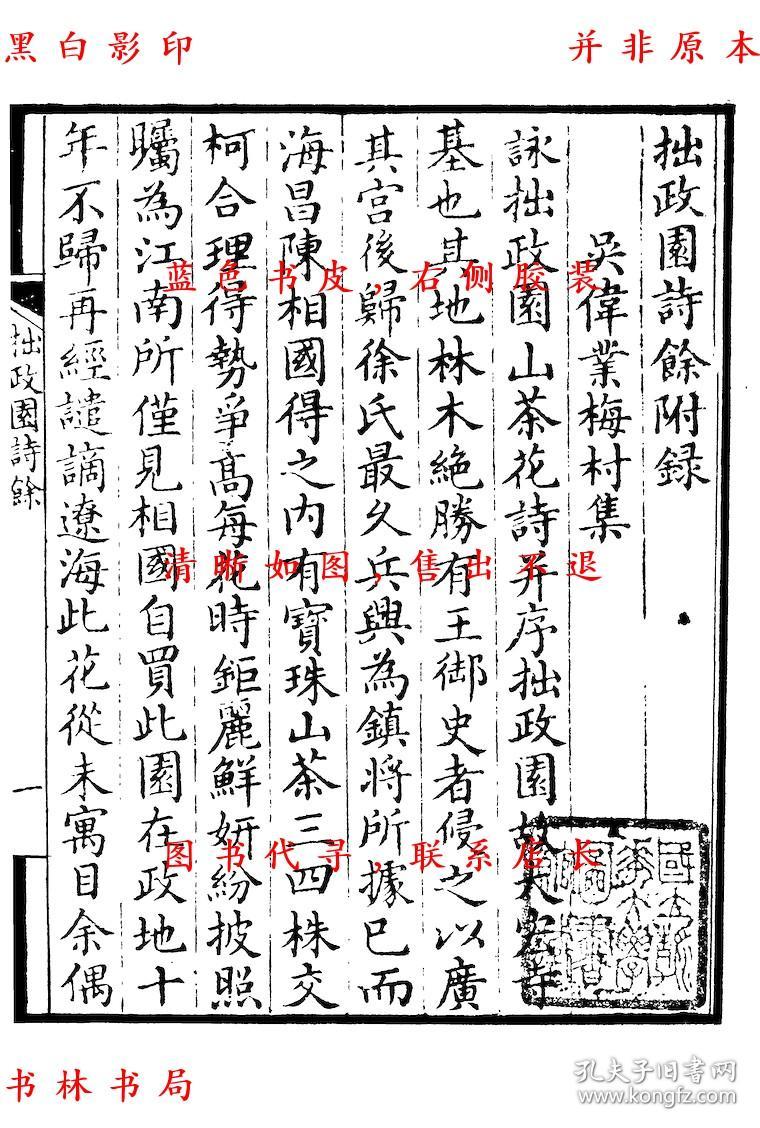 黑白影印
并非原本
拙政園詩餘附録
吳偉業梅村集
詠拙政園山茶花詩并序拙政園故大宏寺
基也其地林木絶勝有王御史者侵之以廣
其宮後歸徐氏最久兵興為鎮將所據已而
海昌陳相國得之内有寶珠山茶三四株交
柯合理得勢爭髙每花時鉅麗鮮妍紛披照
矚為江南所僅見相國自買此園在政地十
年不歸再經譴謫遼海此花從未寓目余偶
拙政園詩餘
一
蓝色书皮，右侧胶装
清晰如图，售出不退
图书代寻，联系店长
书林书局
孔夫子旧书网
www.kongfz.com